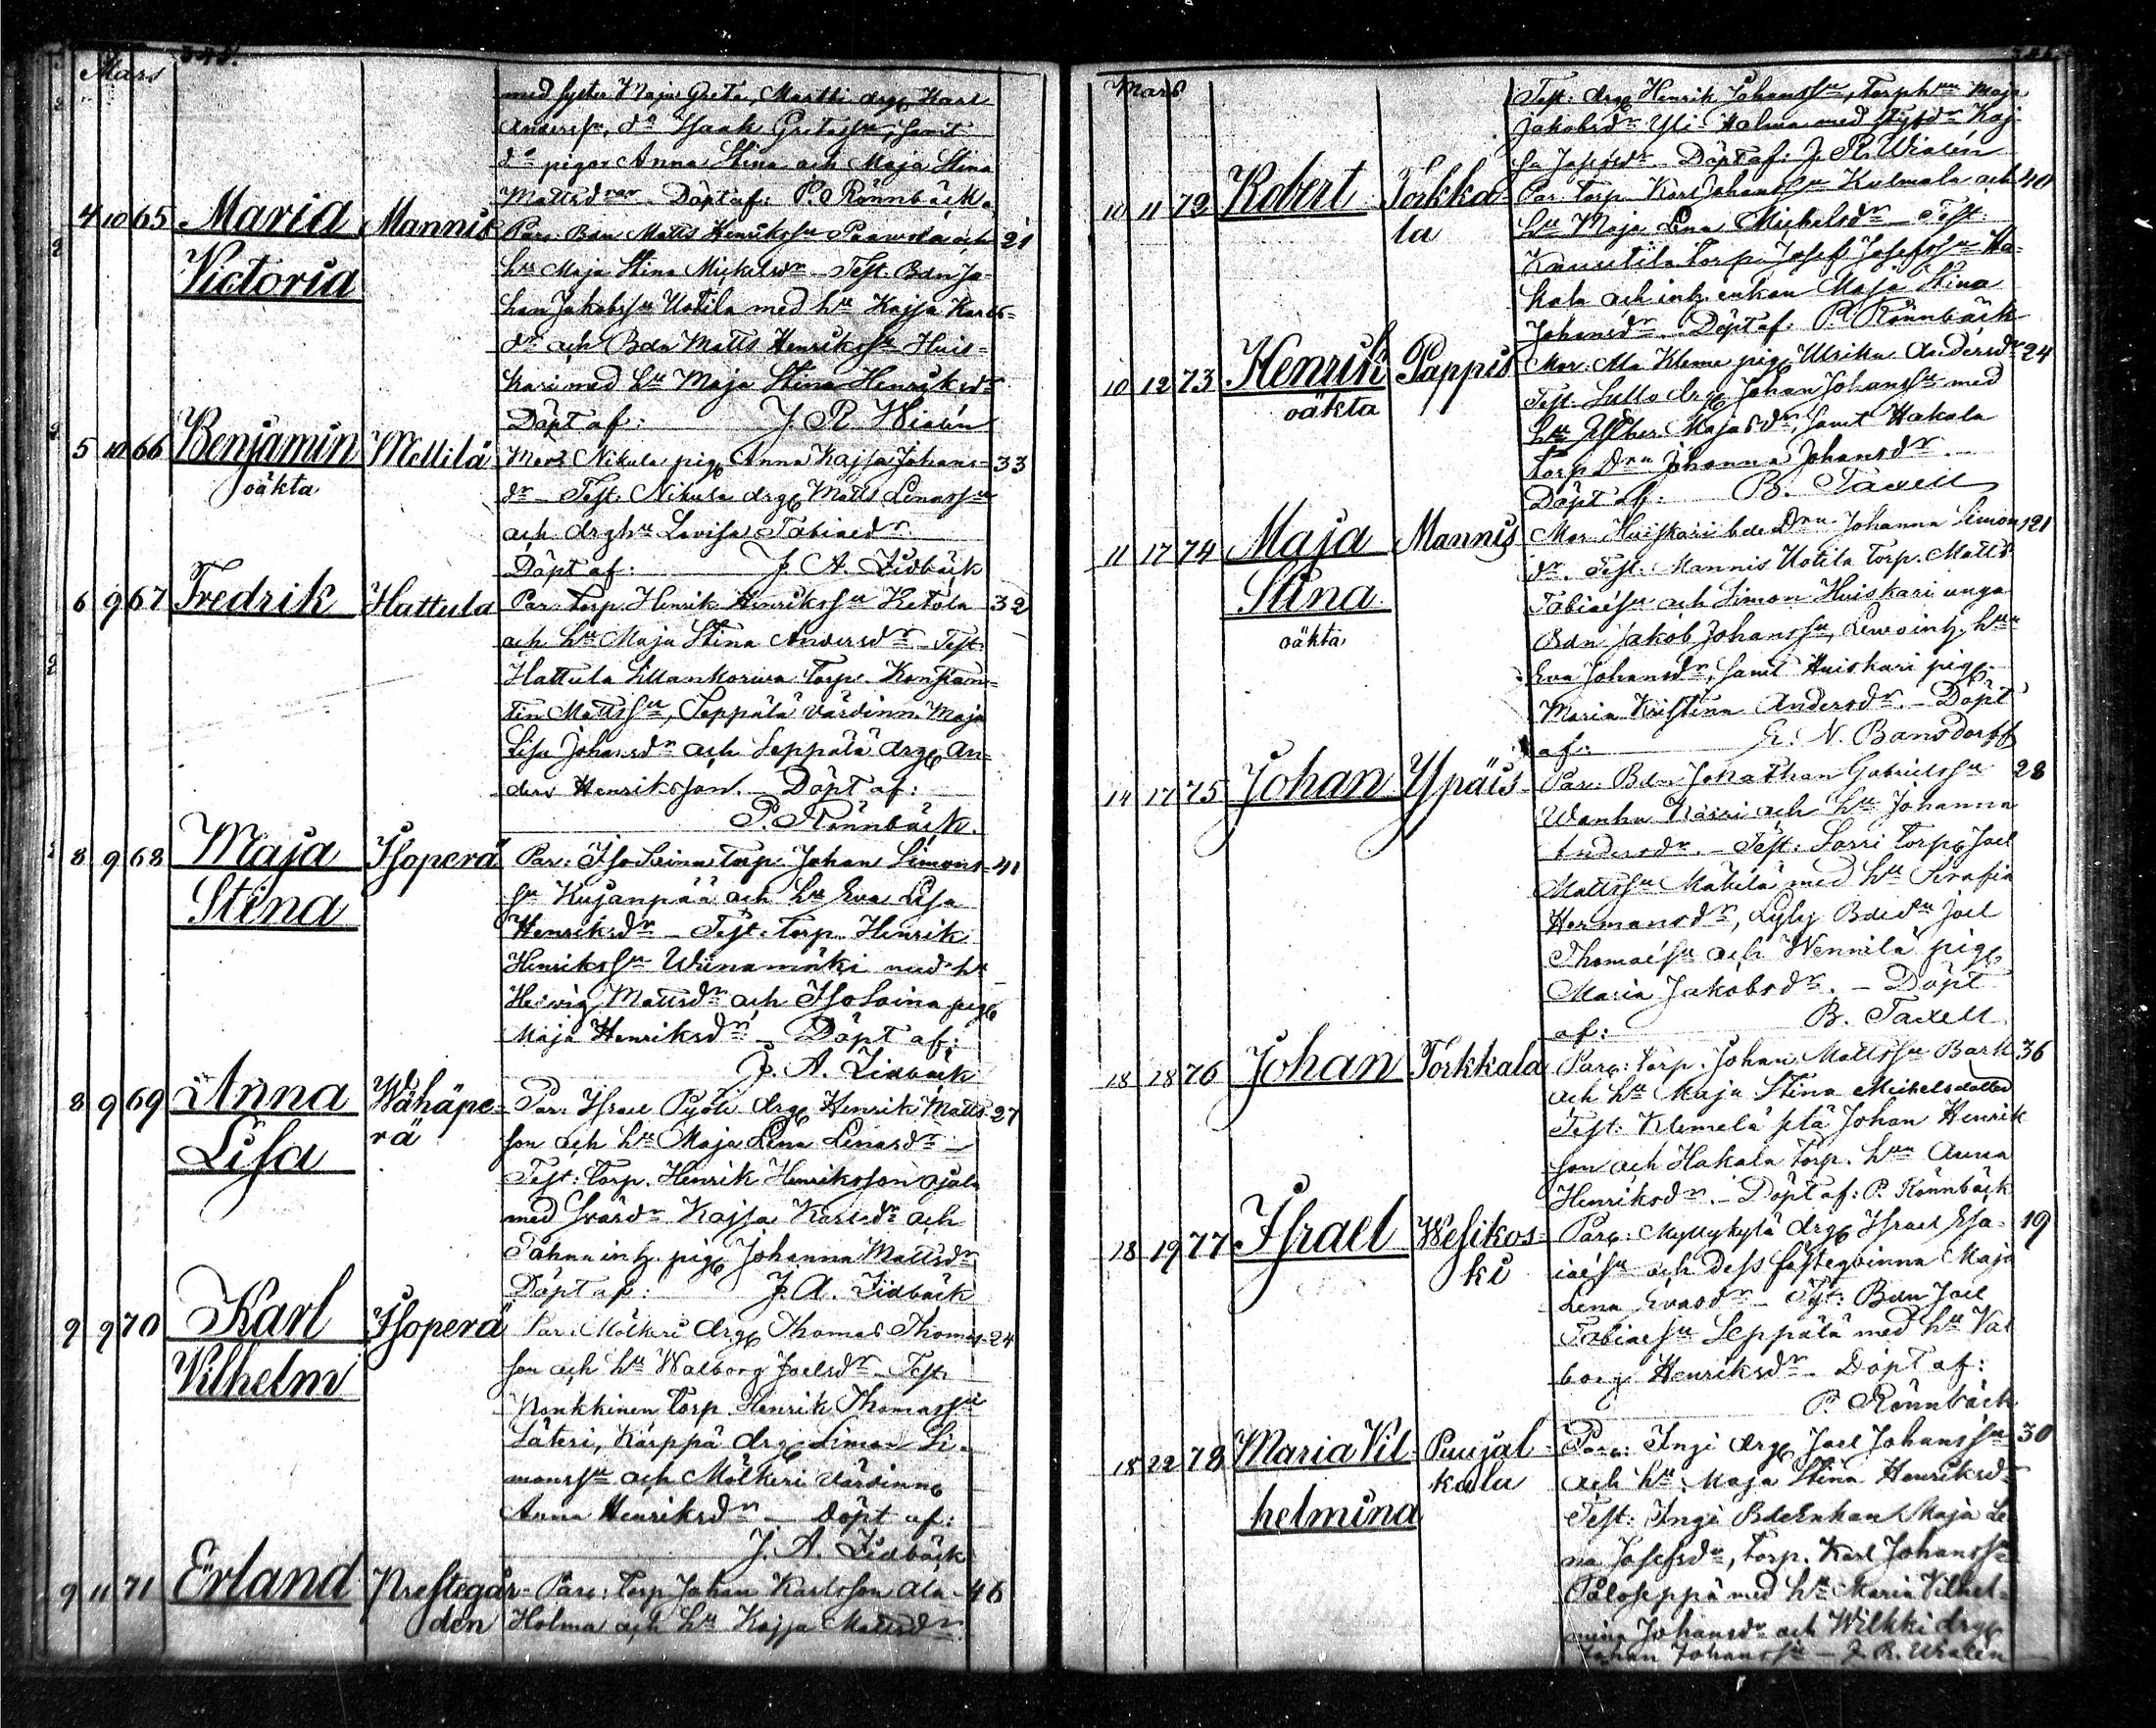 345.
Mars
med syster Maja Greta, Martti drg Karl
Anderss:n, d:o Isaak Gretass:n, samt
d:o pigor Anna Stina och Maja Stina
Mattsdrar. Döpt af: P. Rönnbäck.
4 10 65 Maria Mannis Par: Bdn Matts Henrikss:n Paavola och 21
Victoria h:u Maja Stina Mickelsd:r – Test. Bdn Jo-
han Jakobss:n Uotila med h:u Kajsa Karls-
d:r och Bdn Matts Henrikss:n Huis-
kari med h:u Maja Stina Henriksd:r
Döpt af: J. R. Wialén
5 10 66 Benjamin Mellilä Mor: Nikula pig Anna Kajsa Johans- 33
oäkta d:r – Test: Nikula drg Matts Linass:n
och drgh:u Lovisa Tobiaed:r
Döpt af: J. A. Lidbäck
6 9 67 Fredrik Hattula Par: Torp. Henrik Henrikss:n Ketola 32
och h:u Maja Stina Andersd:r – Test:
Hattula Torp. Konstan-
tin Mattss:n, Seppälä värdinn. Maja
Lisa Johansd:r och Seppälä drg An-
ders Henriksson. – Döpt af:
P. Rönnbäck.
8 9 68 Maja Isoperä Par: Torp. Johan Simons- 41
Stina s:n Kujanpää och h:u Eva Lisa
Henriksd:r – Test. Torp. Henrik
Henrikss:n Wiinamäki med h:u
Hedvig Mattsd:r och pig
Maja Henriksd:r – Döpt af:
J. A. Lidbäck
8 9 69 Anna Wähäpe- Par: Israel Pyöli drg Henrik Matts- 27
Lisa rä son och h:u Maja Lena Linasd:r –
Test: Torp. Henrik Henriksson Ojala
med svärd:r Kajsa Karlsd:r och
inh. pig Johanna Mattsd:r
Döpt af: J. A. Lidbäck
9 9 70 Karl Isoperä Par: Mölkeri drg Thomas Thomas- 24
Vilhelm son och h:u Walborg Joelsd:r – Test:
Nonkkinen Torp. Henrik Thomass:n
Säteri, Kärppä drg Simon Si-
monss:n och Mölkeri värdinn
Anna Henriksd:r – Döpt af:
J. A. Lidbäck
9 11 71 Erland Prestegår- Par: Torp Johan Karlsson Ala- 46
den Holma och h:u Kajsa Mattsd:r
Mars
Test: drg Henrik Johanss:n, Torph:un Maja
Jakobsd:r Yli-Holma med styfd:r Kaj-
sa Josefsd:r. Döpt af: J. R. Wialén
10 11 72 Robert Torkka- Par: Torp. Karl Johanss:n Kulmala och 40
la h:u Maja Lena Mickelsd:r – Test:
Kauutila Torp. Josef Josefss:n Ha-
kala och inh. enkan Maja Stina
Johansd:r. Döpt af: P. Rönnbäck
10 12 73 Henrik Pappis Mor: pig Ulrika Andersd:r 24
oäkta Test. drg Johan Johanss:n med
h:u Esther Majasd:r, samt Hakala
Torp D:rn Johanna Johansd:r.
Döpt af: B. Taxell
11 17 74 Maja Mannis Mor: Huiskari bde D:rn Johanna Simons 21
Stina d:r. Test: Mannis Uotila Torp. Matts
oäkta Tobiaes:n och Simon Huiskari unga
Bdn Jakob Johanss:n, inh. h:un
Eva Johansd:r, samt Huiskari pig
Maria Kristina Andersd:r. – Döpt
af: G. N. Bonsdorff
14 17 75 Johan Ypäis- Par: Bdn Jonathan Gabrielss:n 28
Wanha och h:u Johanna
Andersd:r. – Test: Sarri Torp. Joel
Mattss:n Mäkilä med h:u Serafia
Hermansd:r, Lyly Bdes:n Joel
Thomaes:n och Wennilä pig
Maria Jakobsd:r. – Döpt
af: B. Taxell
18 18 76 Johan Torkkala Par: Torp. Johan Mattss:n Bark 36
och h:u Maja Stina Mickelsdotter
Test: Klemelä Johan Henrik
son och Hakala Torp. h:un Anna
Henriksd:r. – Döpt af: P. Rönnbäck
18 19 77 Israel Wesikos- Par: Myllykylä drg Israel Esa- 19
ki iaes:n och dess fästeqvinna Maja
Lena Evasd:r – Test: Bdn Joel
Tobiaes:n Seppälä med h:u Val
borg Henriksd:r – Döpt af:
P. Rönnbäck
18 22 78 Maria Vil- Puujal- Par: Ingi drg Joel Johanss:n 30
helmina kala och h:u Maja Stina Henriksd:r
Test: Ingi Bdeenkan Maja Le
na Josefsd:r, Torp. Karl Johanss:n
Paloseppä med h:u Maria Vilhel-
mina Johansd:r och Wilkki drg
Johan Johanss:n – J. R. Wialén